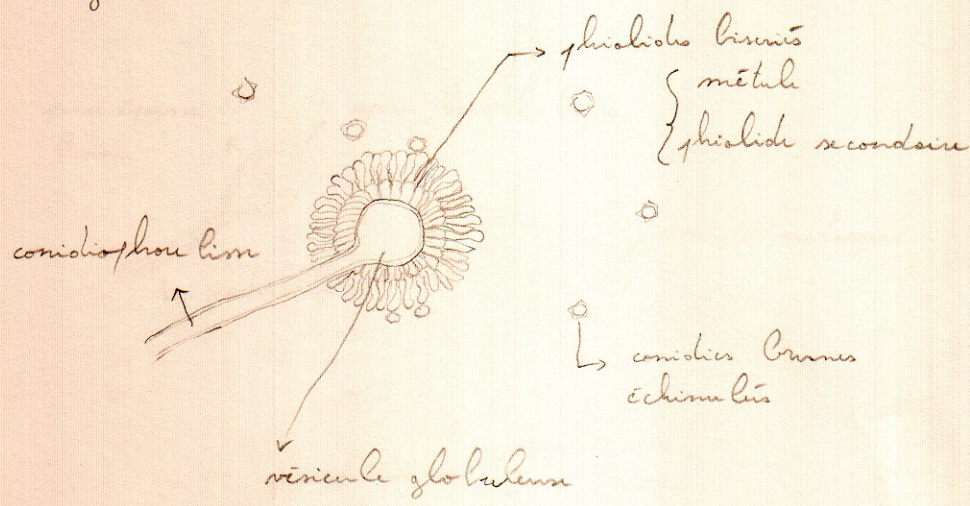 phialides bisériés
métule
phialide secondaire
conidiophore lisse
conidies brunes
échinulés
vésicule globuleuse